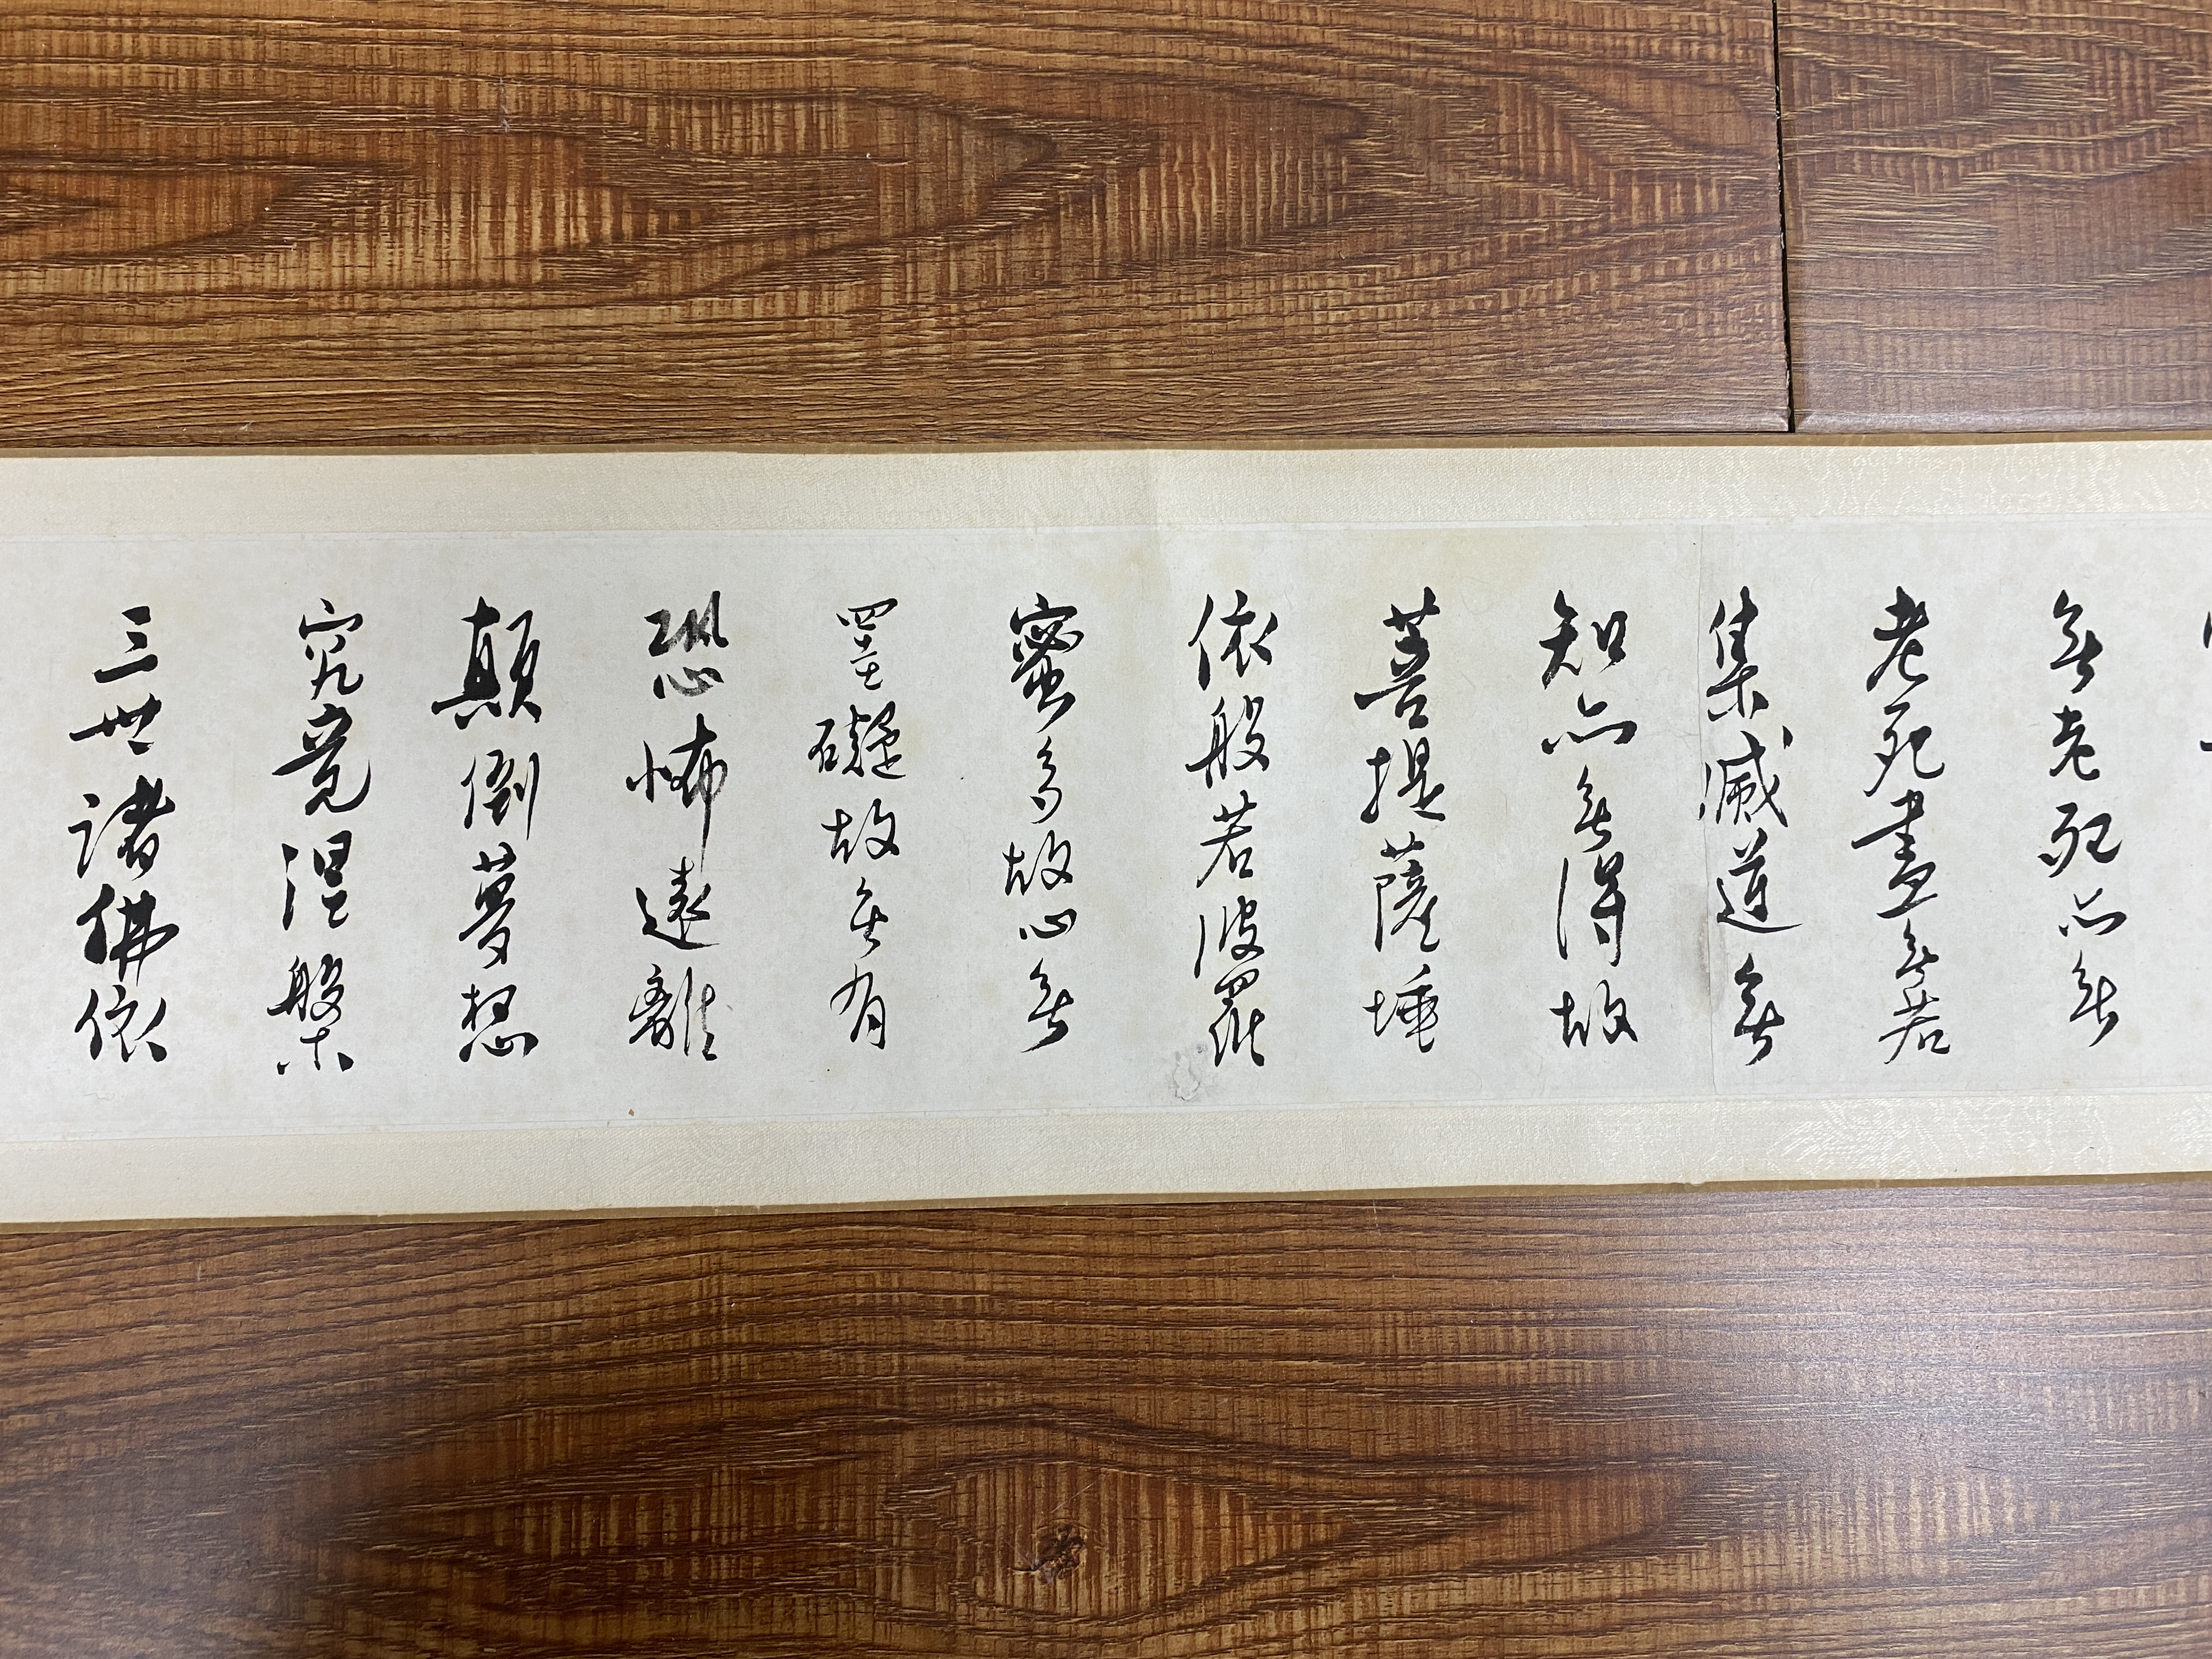 無老死亦無
老死盡無苦
集滅道無
知亦無得故
菩提薩埵
依般若波羅
蜜多故心無
罣礙故無有
恐怖遠離
顛倒夢想
究竟涅槃
三世諸佛依